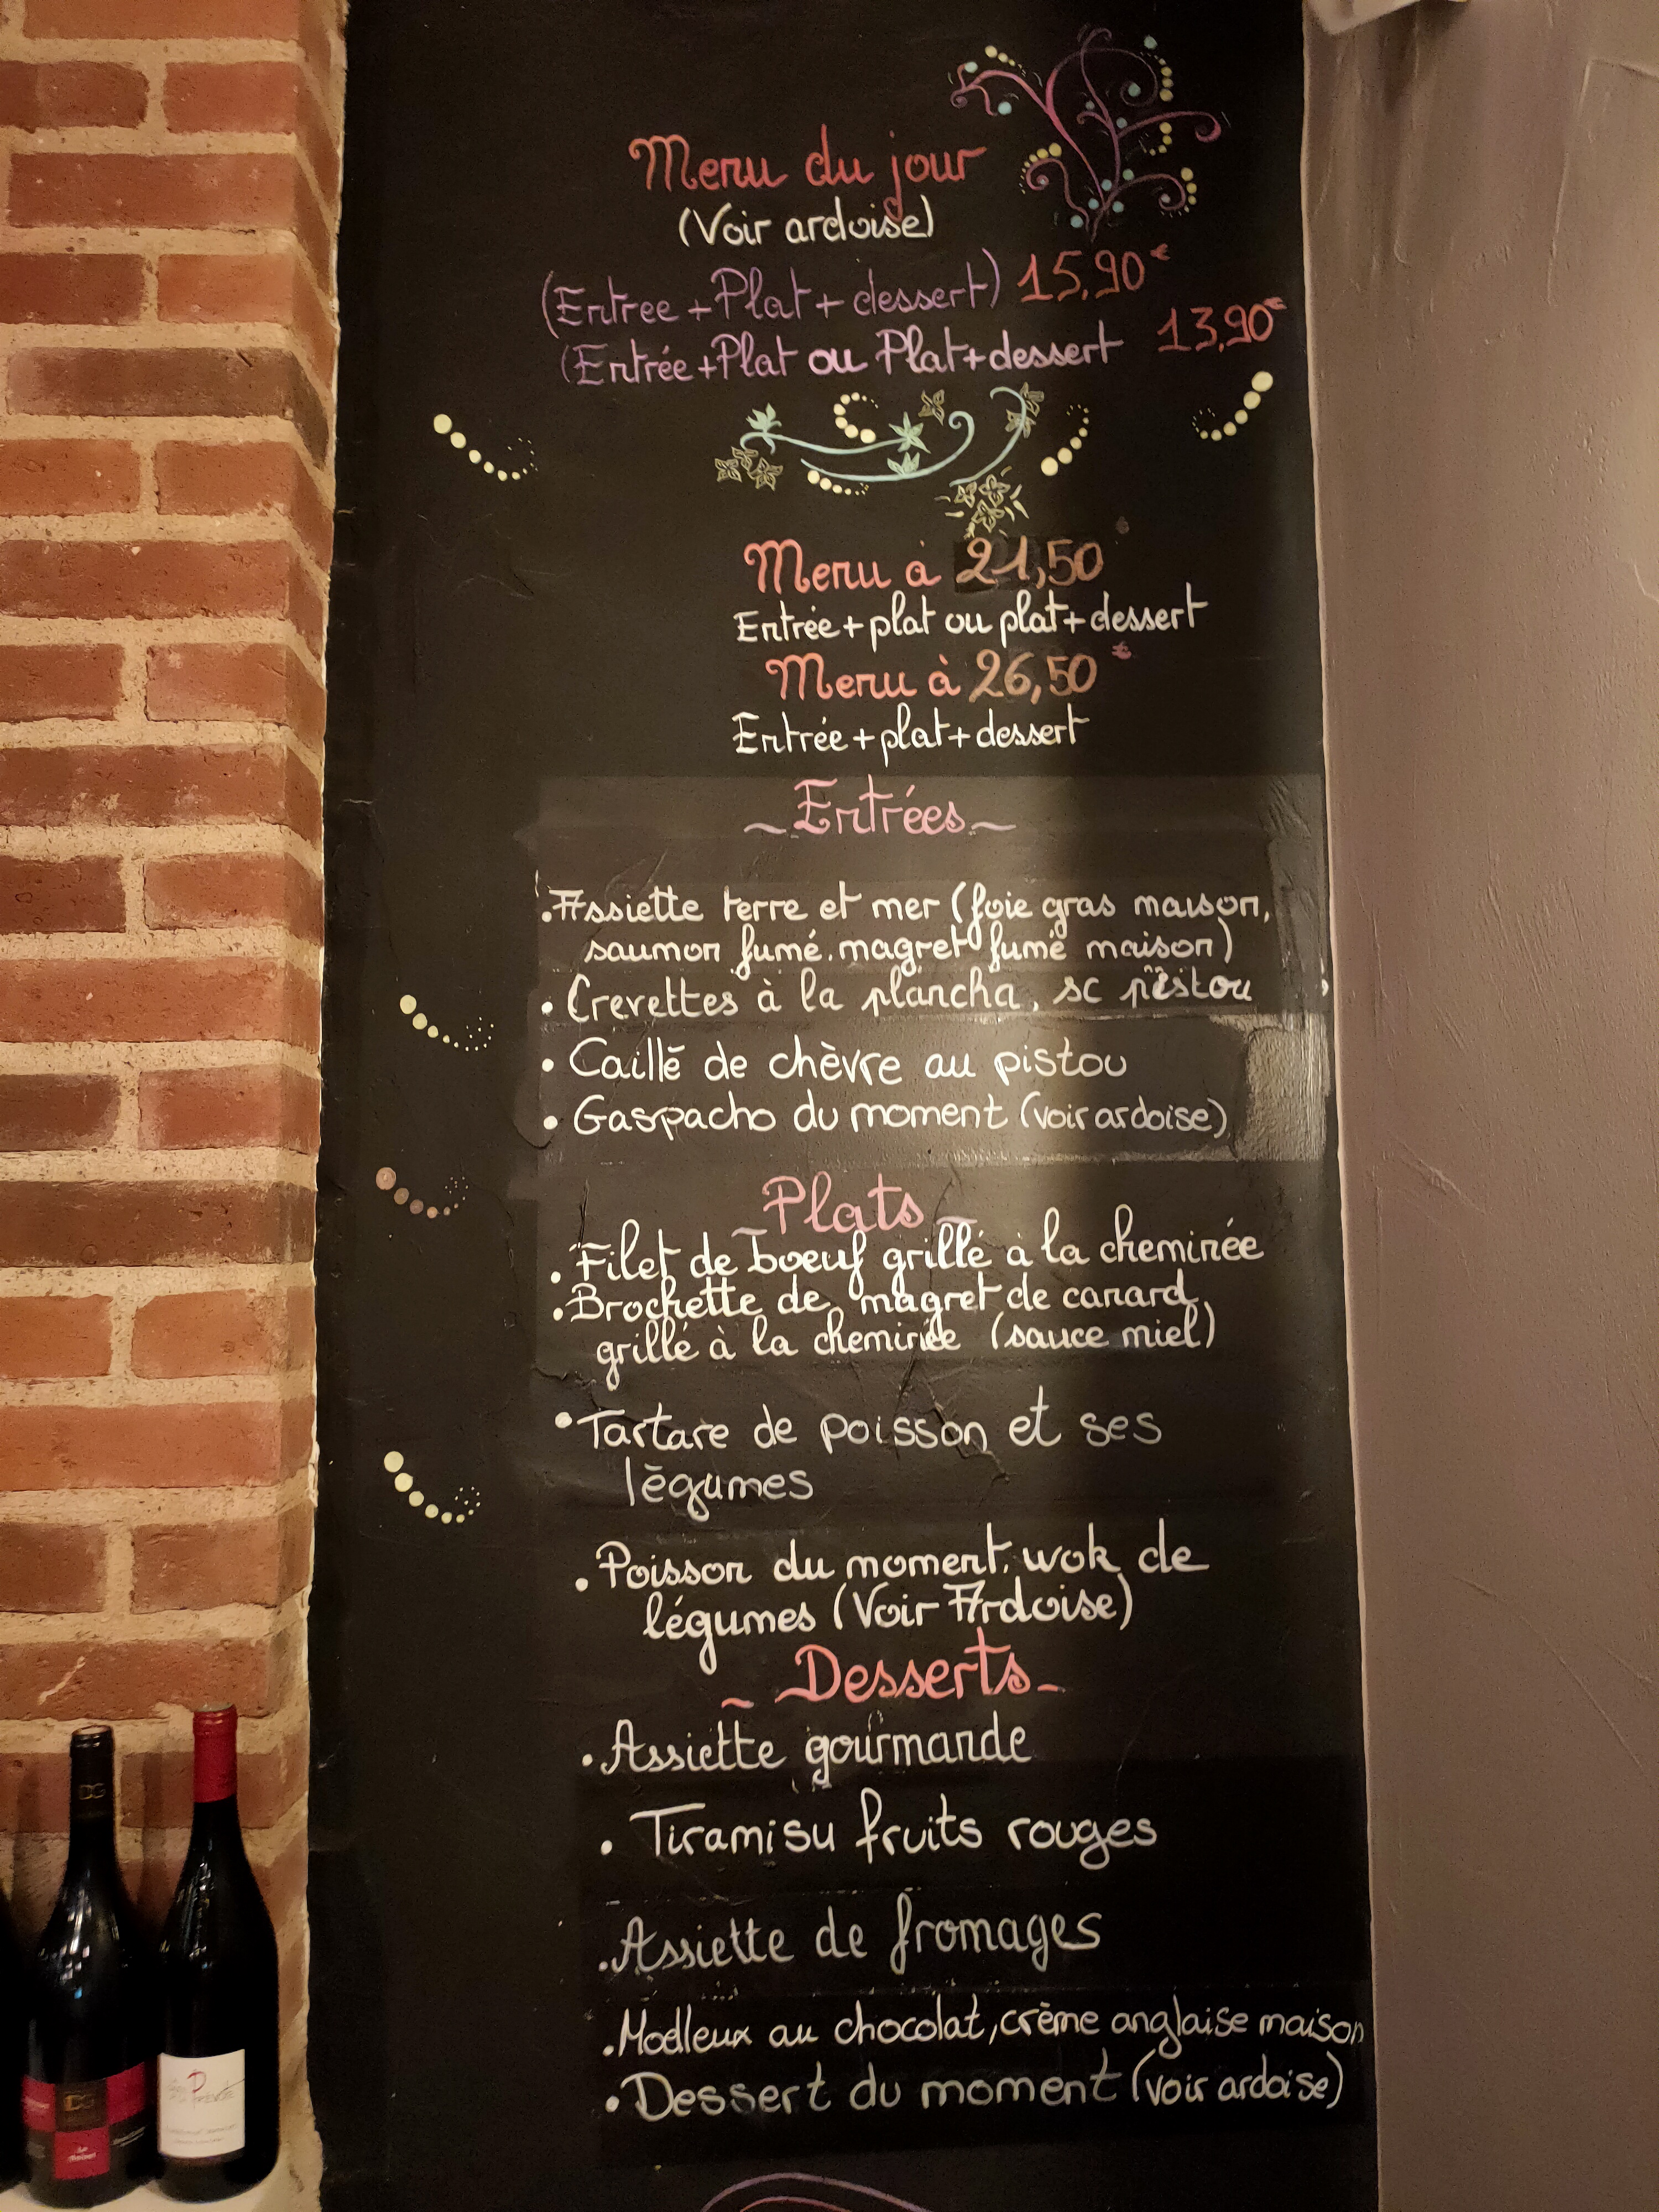 Menu du jour
(Voir ardoise)
(Entree + Plat + dessert) 15,90€
(Entrée + Plat ou Plat + dessert 13,90€
Menu à 21,50
Entrée + plat ou plat + dessert
Menu à 26,50 €
Entrée + plat + dessert
~ Entrées ~
. Assiette terre et mer (foie gras maison,
saumon fumé. magret fumé maison)
. Crevettes à la plancha, sc pistou
• Caillé de chèvre au pistou
• Gaspacho du moment (voir ardoise)
~ Plats ~
. Filet de boeuf grillé à la cheminée
. Brochette de magret de canard
grillé à la cheminée (sauce miel)
• Tartare de poisson et ses
légumes
. Poisson du moment, wok de
légumes (Voir Ardoise)
~ Desserts ~
. Assiette gourmande
. Tiramisu fruits rouges
. Assiette de fromages
. Modleux au chocolat, crème anglaise maison
• Dessert du moment (voir ardoise)
DG
DG